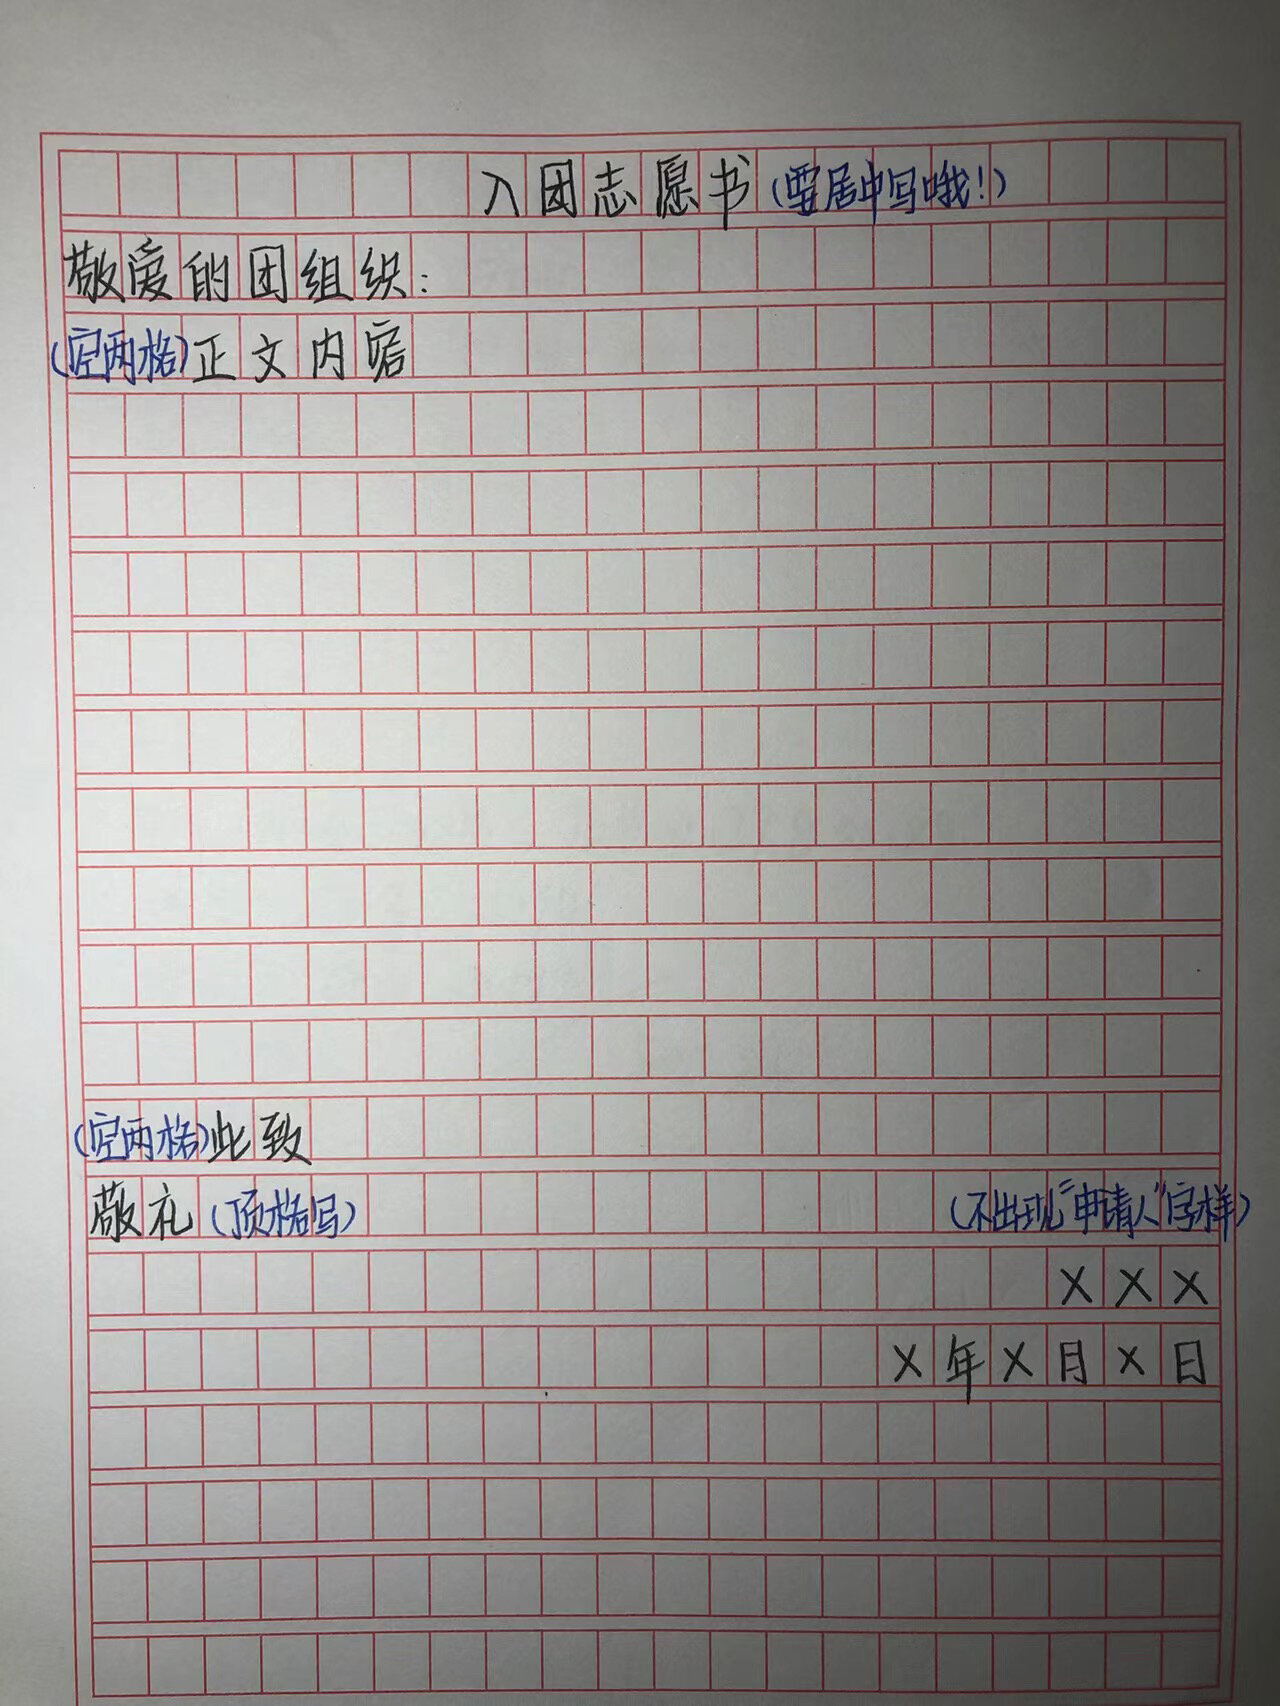 入团志愿书(要居中写哦!)
敬爱的团组织:
(空两格)正文内容
(空两格)此致
敬礼(顶格写)
(不出现"申请人"字样)
XXX
X年X月X日